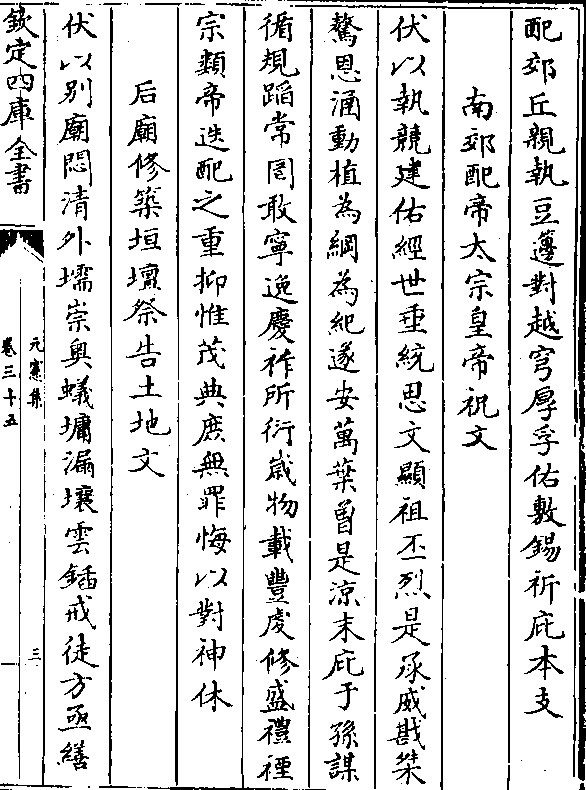 配郊丘親執豆籩對越穹厚孚佑敷錫祈庇本支
南郊配帝太宗皇帝祝文
伏以執競建佑經世垂統思文顯祖丕烈是承威戡桀
驁恩涵動植為綱為紀遂安萬葉曾是涼末庇于孫謀
循規蹈常罔敢寧逸慶祚所衍歲物載豐虔修盛禮禋
宗類帝迭配之重抑惟茂典庶無罪悔以對神休
后廟修築垣壝祭告土地文
伏以別廟悶清外壖崇奥蟻墉漏壤雲鍤戒徒方亟繕
欽定四庫全書
元憲集
卷三十五
三